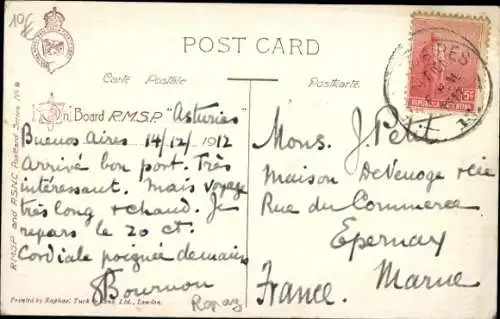 10F
POST CARD
Carte Postale
Postkarte
BUENOS AIRES
5c
REPUBLICA ARGENTINA
R.M.S.P. and P.S.N.C. Postcard Series No.
On Board R.M.S.P. "Asturias"
Buenos Aires 14/12/1912
Arrivé bon port. Très
intéressant. Mais voyage
très long & chaud. Je
repars le 20 ct.
Cordiale poignée de mains
Bournon
Mons. J Petit
Maison De Venoge & Cie
Rue du Commerce
Epernay
Marne
France.
Printed by Raphael Tuck & Sons, Ltd., London.